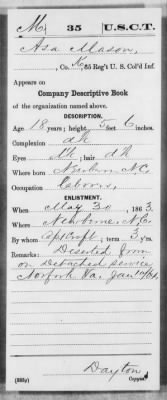 M | 35 | U.S.C.T.
Asa Mason,
, Co. K, 35 Reg't U. S. Col'd Inf.
Appears on
Company Descriptive Book
of the organization named above.
DESCRIPTION.
Age 18 years; height 5 feet 6 inches.
Complexion dk
Eyes dk; hair dk
Where born Newbern N.C.
Occupation
ENLISTMENT.
When May 30, 1863.
Where Newberne, N.C.
By whom Capt Croft; term 3 y'rs.
Remarks: Deserted from
on Detached service
Norfolk Va. Jan 10/64
Dayton
Copyist.